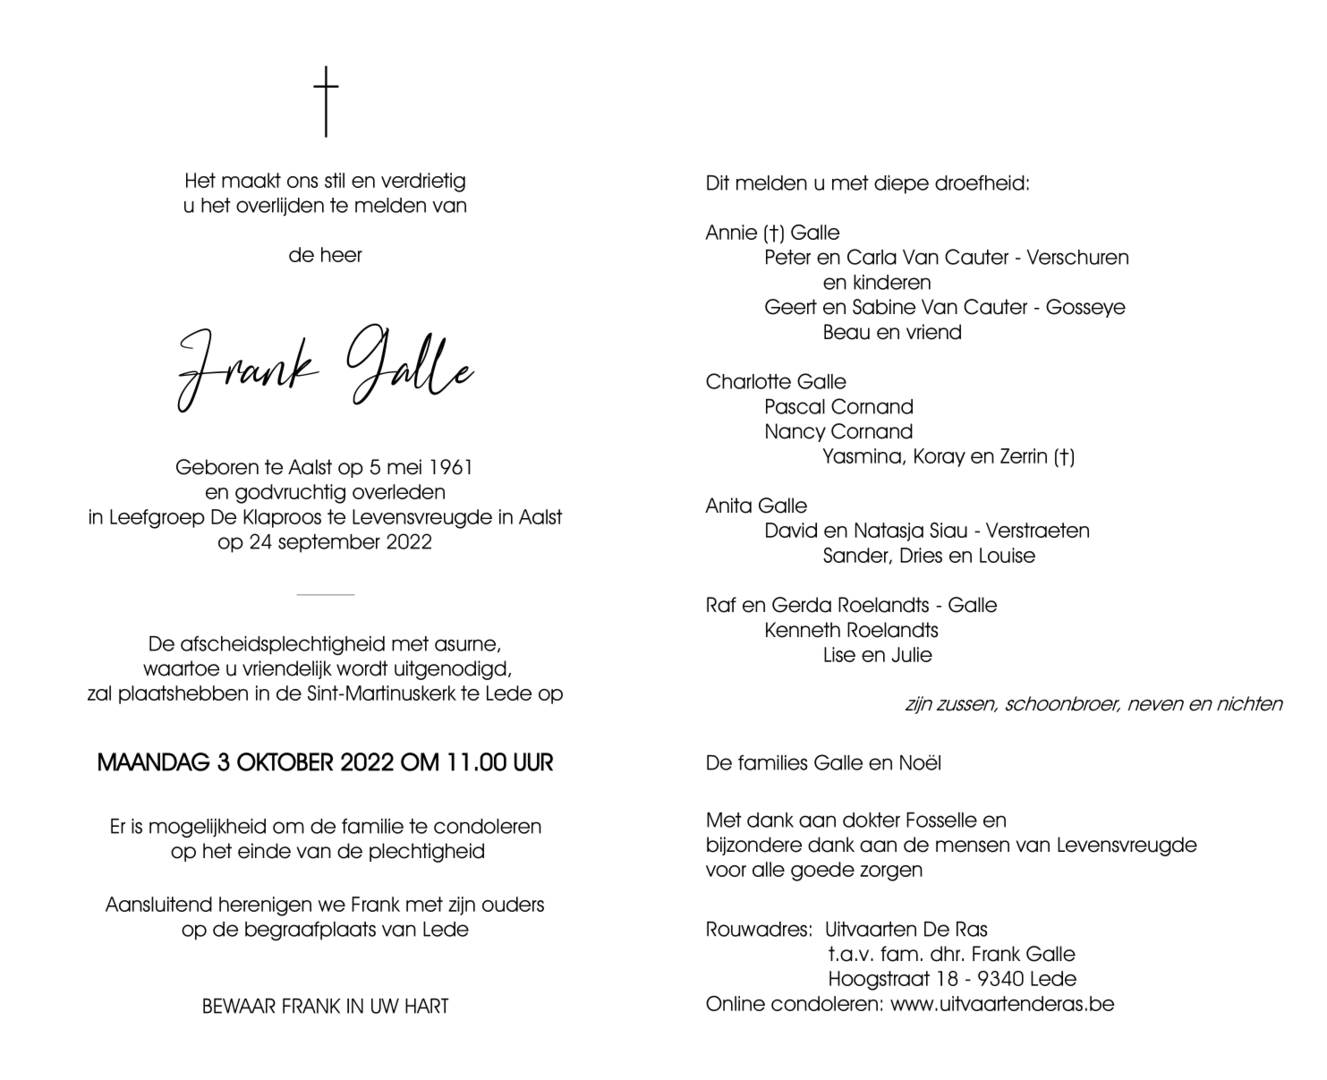 Het maakt ons stil en verdrietig
u het overlijden te melden van
de heer
Frank Galle
Geboren te Aalst op 5 mei 1961
en godvruchtig overleden
in Leefgroep De Klaproos te Levensvreugde in Aalst
op 24 september 2022
De afscheidsplechtigheid met asurne,
waartoe u vriendelijk wordt uitgenodigd,
zal plaatshebben in de Sint-Martinuskerk te Lede op
MAANDAG 3 OKTOBER 2022 OM 11.00 UUR
Er is mogelijkheid om de familie te condoleren
op het einde van de plechtigheid
Aansluitend herenigen we Frank met zijn ouders
op de begraafplaats van Lede
BEWAAR FRANK IN UW HART
Dit melden u met diepe droefheid:
Annie (†) Galle
Peter en Carla Van Cauter - Verschuren
en kinderen
Geert en Sabine Van Cauter - Gosseye
Beau en vriend
Charlotte Galle
Pascal Cornand
Nancy Cornand
Yasmina, Koray en Zerrin (†)
Anita Galle
David en Natasja Siau - Verstraeten
Sander, Dries en Louise
Raf en Gerda Roelandts - Galle
Kenneth Roelandts
Lise en Julie
zijn zussen, schoonbroer, neven en nichten
De families Galle en Noël
Met dank aan dokter Fosselle en
bijzondere dank aan de mensen van Levensvreugde
voor alle goede zorgen
Rouwadres: Uitvaarten De Ras
t.a.v. fam. dhr. Frank Galle
Hoogstraat 18 - 9340 Lede
Online condoleren: www.uitvaartenderas.be